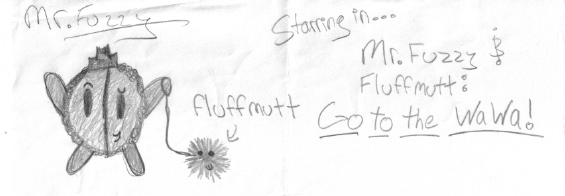 Mr. Fuzzy
Starring in...
Mr. Fuzzy &
Fluffmutt:
Go to the WaWa!
fluffmutt